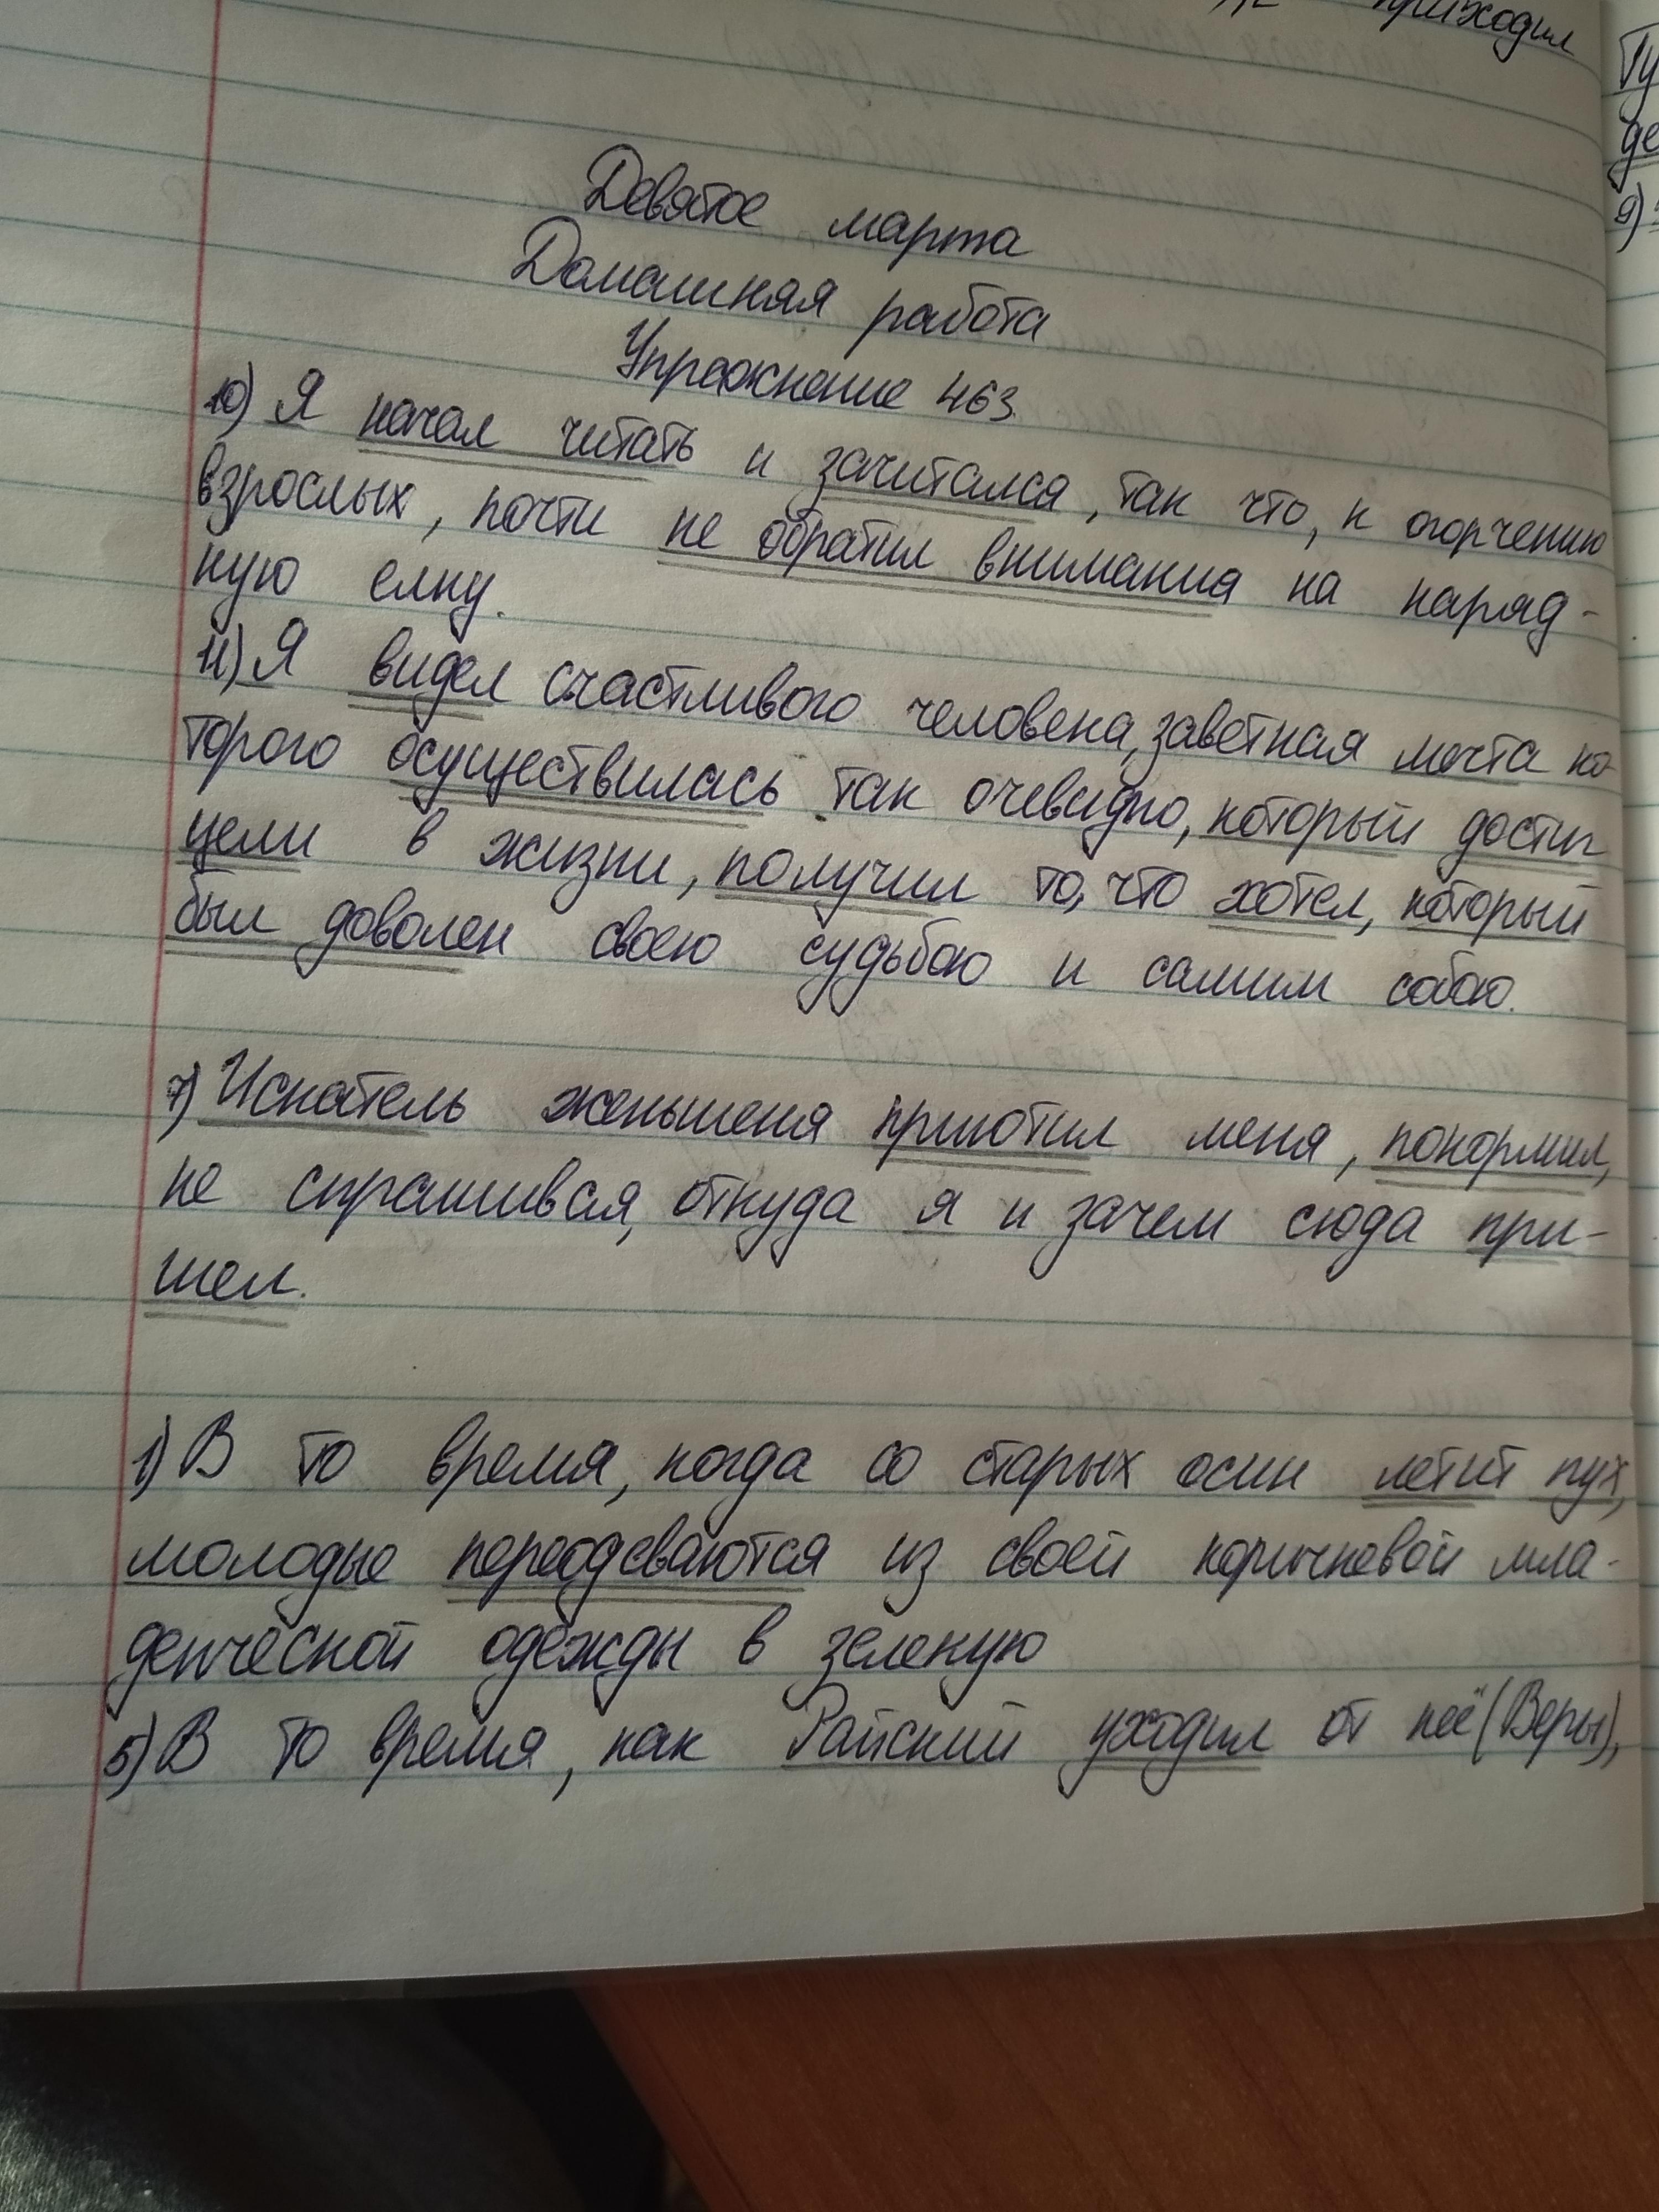 приходил
Девятое марта
Домашняя работа
Упражнение 463.
10) Я начал читать и зачитался, так что, к огорчению
взрослых, почти не обратил внимания на наряд-
ную елку.
11) Я видел счастливого человека, заветная мечта ко-
торого осуществилась так очевидно, который достиг
цели в жизни, получил то, что хотел, который
был доволен своею судьбою и самим собою.
7) Искатель женьшеня приютил меня, покормил,
не спрашивая, откуда я и зачем сюда при-
шел.
1) В то время, когда со старых осин летит пух,
молодые переодеваются из своей коричневой мла-
денческой одежды в зеленую
5) В то время, как Райский уходил от неё (Веры),